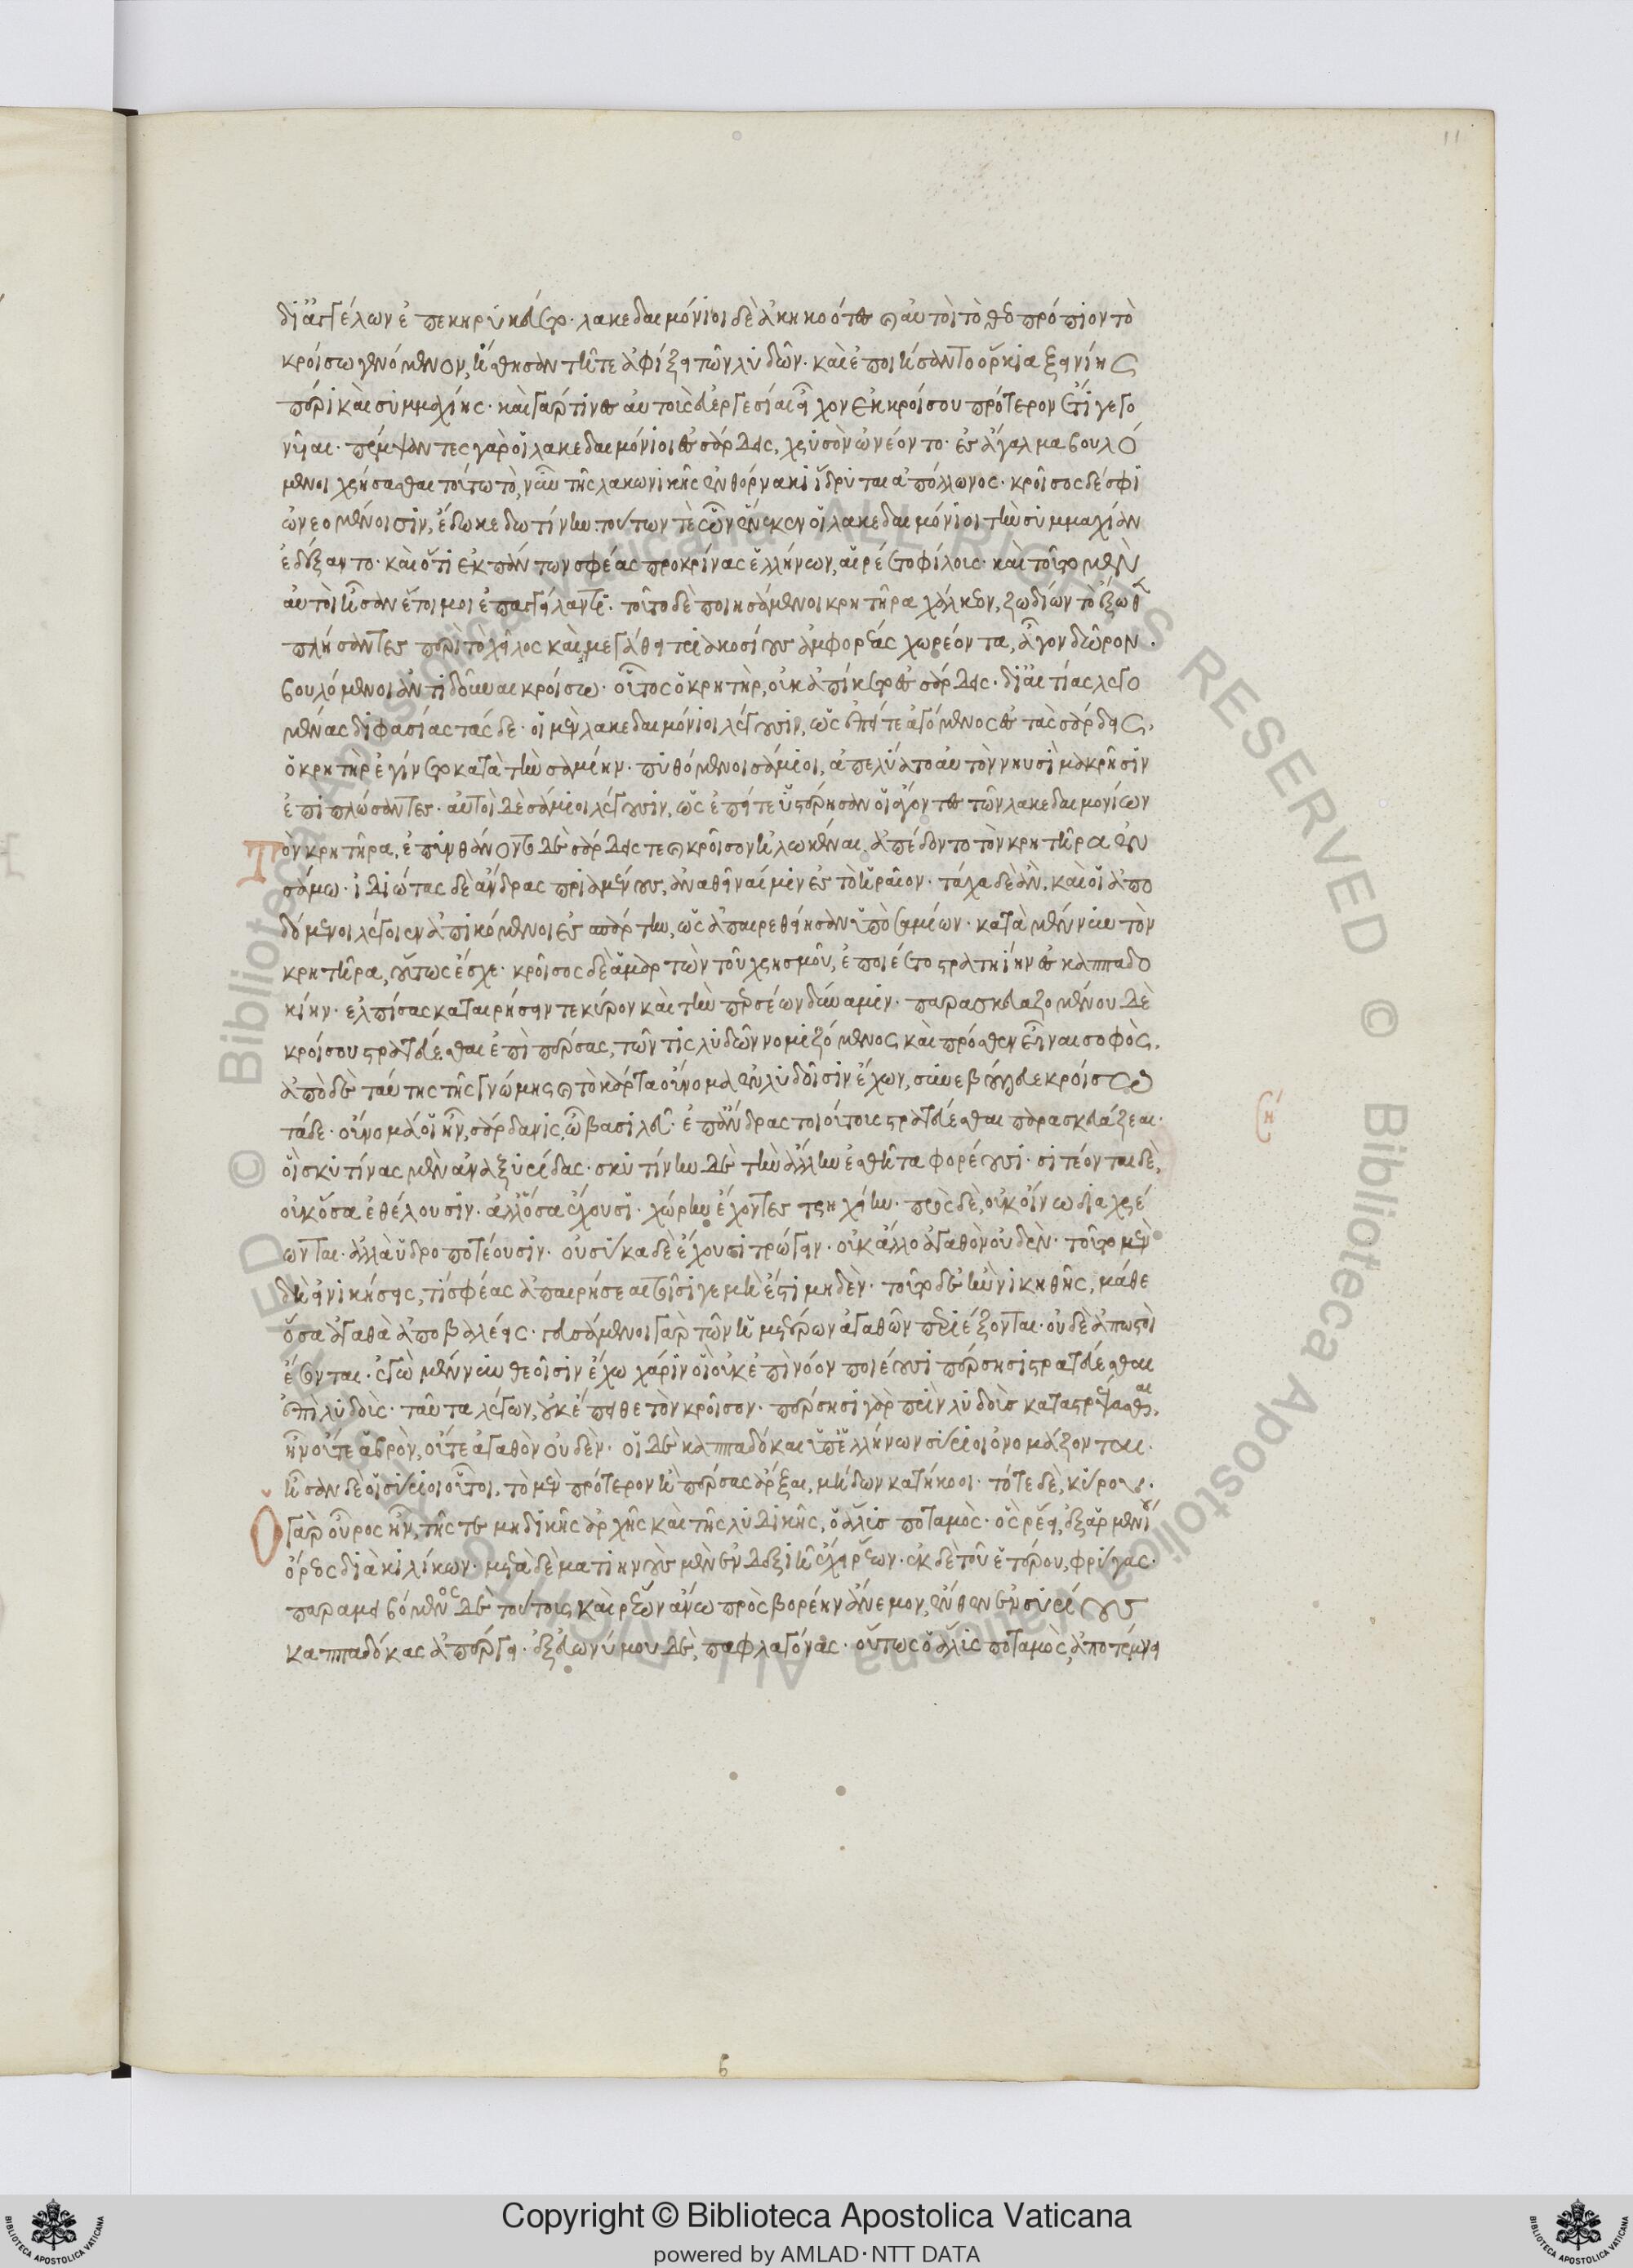 11
δι' ἀγγέλων ἐπεκηρυκεύετο· λακεδαιμόνιοι δὲ ἀκηκοότες καὶ αὐτοὶ τὸ θεοπρόπιον τὸ
κροίσω γενόμενον, ἥσθησάν τε τῆ ἀφίξει τῶν λυδῶν· καὶ ἐποιήσαντο ὅρκια ξεινίης
πέρι καὶ συμμαχίης· καὶ γάρ τινες αὐτοὺς εὐεργεσίαι εἶχον ἐκ κροίσου πρότερον ἔτι γεγο
νυῖαι· πέμψαντες γὰρ οἱ λακεδαιμόνιοι ἐς σάρδις, χρυσὸν ὠνέοντο· ἐς ἄγαλμα βουλό
μενοι χρήσασθαι τούτω τὸ, νῦν τῆς λακωνικῆς ἐν θόρνακι ἵδρυται ἀπόλλωνος· κροῖσος δέ σφι
ὠνεομένοισιν, ἔδωκε δωτίνην· τούτων τε ὧν εἵνεκεν οἱ λακεδαιμόνιοι τὴν συμμαχίαν
ἐδέξαντο· καὶ ὅτι ἐκ πάντων σφέας προκρίνας ἑλλήνων, αἱρέετο φίλους· καὶ τοῦτο μὲν
αὐτοὶ ἦσαν ἕτοιμοι ἐπαγγείλαντι· τοῦτο δὲ ποιησάμενοι κρητῆρα χάλκεον, ζωδίων τὸ ἔξωθεν
πλήσαντες περὶ τὸ χεῖλος καὶ μεγάθει τριηκοσίους ἀμφορέας χωρέοντα, ἦγον δῶρον
βουλόμενοι ἀντιδοῦναι κροίσω· οὗτος ὁ κρητὴρ, οὐκ ἀπίκετο ἐς σάρδις· δι' αἰτίας λεγο
μένας διφασίας τάσδε· οἱ μὲν λακεδαιμόνιοι λέγουσιν, ὡς ἐπεί τε ἀγόμενος ἐς τὰς σάρδεις,
ὁ κρητὴρ ἐγίνετο κατὰ τὴν σαμίην· πυθόμενοι σάμιοι, ἀπελοίατο αὐτὸν νηυσὶ μακρῆσιν
ἐπιπλώσαντες· αὐτοὶ δὲ σάμιοι λέγουσιν, ὡς ἐπεί τε ὑστέρησαν οἱ ἄγοντες τῶν λακεδαιμονίων
τὸν κρητῆρα, ἐπυνθάνοντο δὲ σάρδις τε καὶ κροῖσον ἡλωκέναι, ἀπέδοντο τὸν κρητῆρα ἐν
σάμω· ἰδιώτας δὲ ἄνδρας πριαμένους, ἀναθεῖναί μιν ἐς τὸ ἥραιον· τάχα δὲ ἂν, καὶ οἱ ἀπο
δόμενοι λέγοιεν ἀπικόμενοι ἐς σπάρτην, ὡς ἀπαιρεθείησαν ὑπὸ σαμίων· κατὰ μέν νυν τὸν
κρητῆρα, οὕτως ἔσχε· κροῖσος δὲ ἁμαρτὼν τοῦ χρησμοῦ, ἐποιέετο στρατηίην ἐς καππαδο
κίην· ἐλπίσας καταιρήσειν τε κῦρον καὶ τὴν περσέων δύναμιν· παρασκευαζομένου δὲ
κροίσου στρατεύεσθαι ἐπὶ πέρσας, τῶν τις λυδῶν νομιζόμενος καὶ πρόσθεν εἶναι σοφὸς,
ἀπὸ δὲ ταύτης τῆς γνώμης καὶ τὸ κάρτα οὔνομα ἐν λυδοῖσιν ἔχων, συνεβούλευε κροίσω
τάδε· οὔνομά οἱ ἦν, σάρδανις, ὦ βασιλεῦ· ἐπ' ἄνδρας τοιούτους στρατεύεσθαι παρασκευάζεαι·
οἳ σκυτίνας μὲν ἀναξυρίδας· σκυτίνην δὲ τὴν ἄλλην ἐσθῆτα φορέουσι· σιτέονται δὲ,
οὐκ ὅσα ἐθέλουσιν· ἀλλ' ὅσα ἔχουσι· χώρην ἔχοντες τρηχείην· πρὸς δὲ, οὐκ οἴνω διαχρέ
ωνται· ἀλλὰ ὑδροποτέουσιν· οὐ σῦκα δὲ ἔχουσι τρώγειν· οὐκ ἄλλο ἀγαθὸν οὐδὲν· τοῦτο μὲν
δὴ εἰ νικήσεις, τί σφέας ἀπαιρήσεαι τοῖσί γε μὴ ἔστι μηδὲν· τοῦτο δὲ ἢν νικηθῆς, μάθε
ὅσα ἀγαθὰ ἀποβαλέεις· γευσάμενοι γὰρ τῶν ἡμετέρων ἀγαθῶν περιέξονται· οὐδὲ ἀπωστοὶ
ἔσονται· ἐγὼ μέν νυν θεοῖσιν ἔχω χάριν οἳ οὐκ ἐπὶ νόον ποιέουσι πέρσησι στρατεύεσθαι
ἐπὶ λυδοὺς· ταῦτα λέγων, οὐκ ἔπειθε τὸν κροῖσον· πέρσησι γὰρ πρὶν λυδοὺς καταστρέψασθαι,
ἦν οὔτε ἁβρὸν, οὔτε ἀγαθὸν οὐδὲν· οἱ δὲ καππαδόκαι ὑπ' ἑλλήνων σύριοι ὀνομάζονται·
ἦσαν δὲ οἱ σύριοι οὗτοι, τὸ μὲν πρότερον ἢ πέρσας ἄρξαι, μήδων κατήκοοι· τότε δὲ, κύρου·
ὁ γὰρ οὖρος ἦν, τῆς τε μηδικῆς ἀρχῆς καὶ τῆς λυδικῆς, ὁ ἅλις ποταμὸς· ὃς ῥέει, ἐξ ἀρμενίου
ὄρεος διὰ κιλίκων· μετὰ δὲ ματιηνοὺς μὲν ἐν δεξιῆ ἔχει ῥέων· ἐκ δὲ τοῦ ἑτέρου, φρύγας·
παραμειβόμενος δὲ τούτους καὶ ῥέων ἄνω πρὸς βορέην ἄνεμον, ἔνθεν ἐν συρίους
καππαδόκας ἀπέργει· ἐξ εὐωνύμου δὲ, παφλαγόνας· οὕτως ὁ ἅλις ποταμὸς, ἀποτέμνει
Copyright © Biblioteca Apostolica Vaticana
powered by AMLAD·NTT DATA